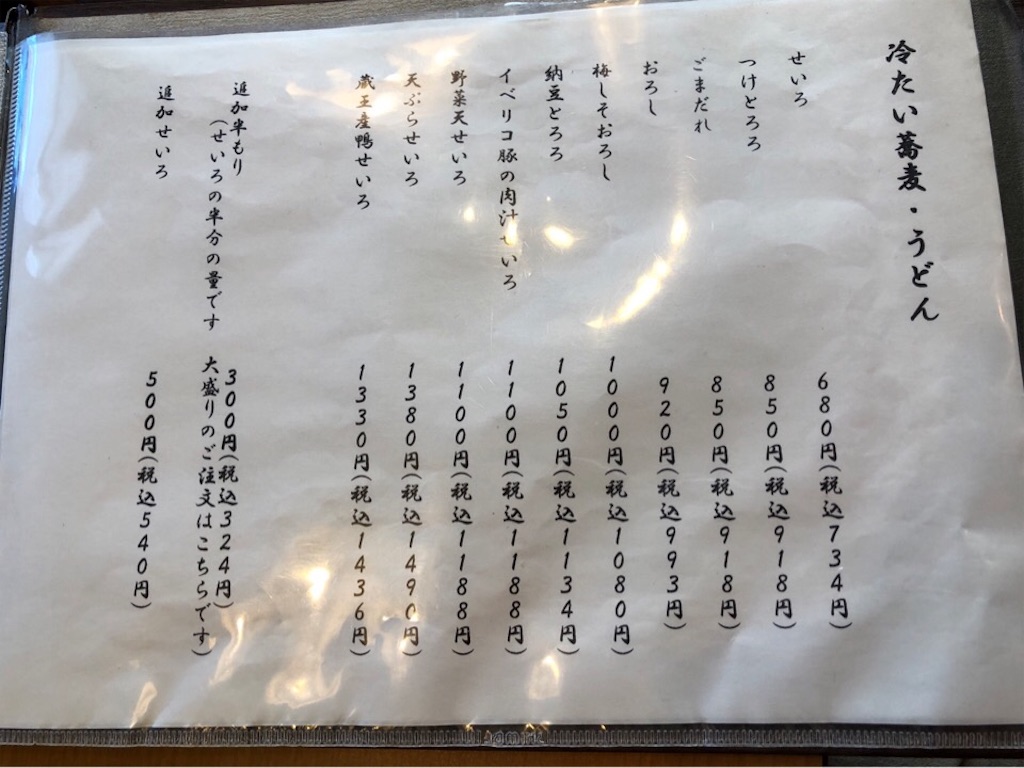 冷たい蕎麦・うどん
せいろ 680円(税込734円)
つけとろろ 850円(税込918円)
ごまだれ 850円(税込918円)
おろし 920円(税込993円)
梅しそおろし 1000円(税込1080円)
納豆とろろ 1050円(税込1134円)
イベリコ豚の肉汁せいろ 1100円(税込1188円)
野菜天せいろ 1100円(税込1188円)
天ぷらせいろ 1380円(税込1490円)
蔵王産鴨せいろ 1330円(税込1436円)
追加半もり 300円(税込324円)
(せいろの半分の量です 大盛りのご注文はこちらです)
追加せいろ 500円(税込540円)